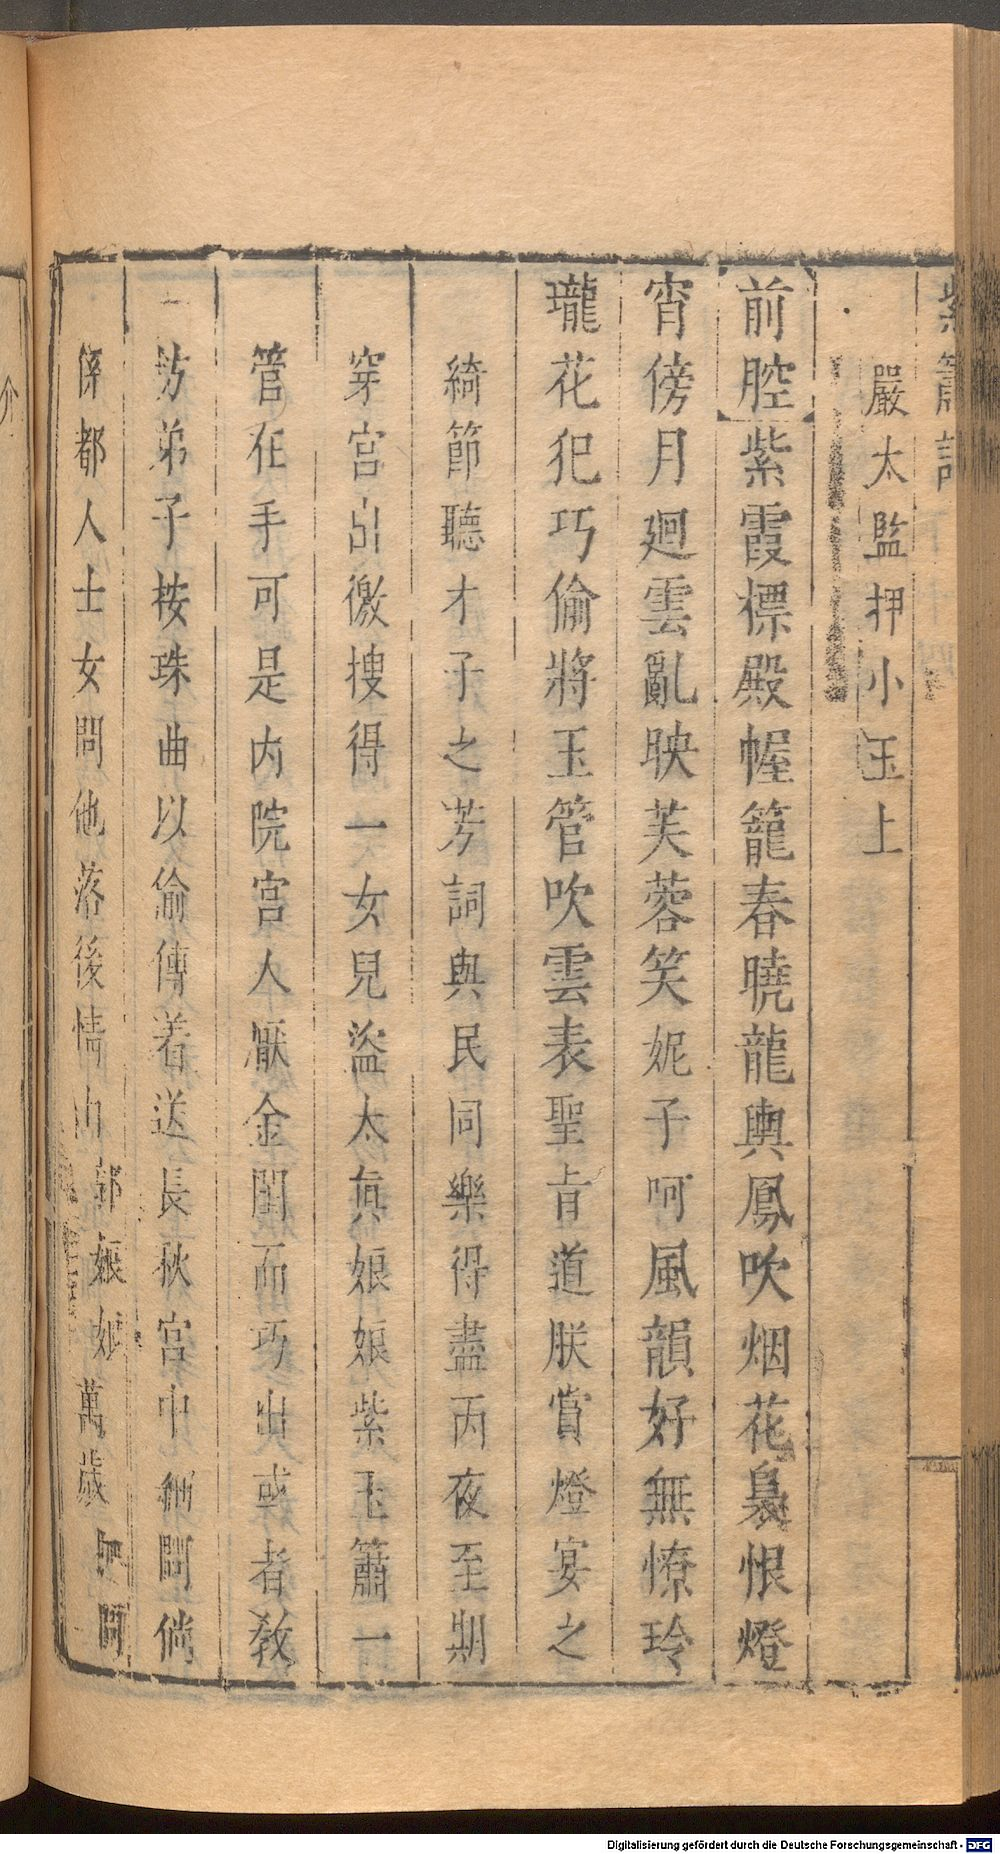 紫簫記
嚴太監押小玉上
前腔紫霞標殿幄籠春曉龍輿鳳吹烟花裊恨燈
宵傍月廻雲亂映芙蓉笑妮子呵風韻好無憀玲
瓏花犯巧偷將玉管吹雲表聖旨道朕賞燈宴之
綺節聽才子之芳詞與民同樂得盡丙夜至期
穿宮引徼搜得一女兒盜太眞娘娘紫玉簫一
管在手可是内院宮人厭金閨而巧出或者敎
坊弟子按珠曲以偷傳着送長秋宮中細問倘
係都人士女問他落後情由郭娘娘萬歲
介
Digitalisierung gefördert durch die Deutsche Forschungsgemeinschaft - DFG